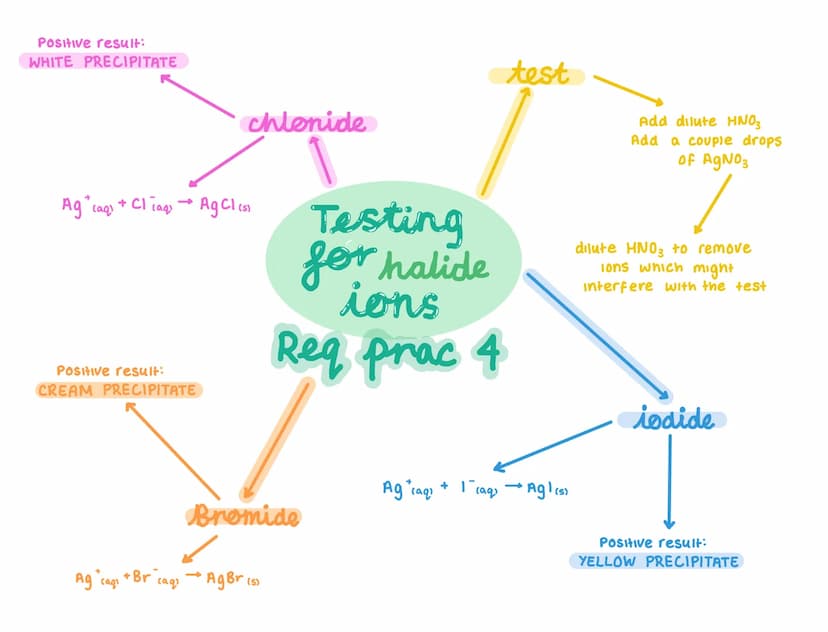 Testing
for halide
ions
Req prac 4
test
Add dilute HNO₃
Add a couple drops
of AgNO₃
dilute HNO₃ to remove
ions which might
interfere with the test
chloride
Positive result:
WHITE PRECIPITATE
Ag⁺(aq) + Cl⁻(aq) → AgCl(s)
Bromide
Positive result:
CREAM PRECIPITATE
Ag⁺(aq) + Br⁻(aq) → AgBr(s)
iodide
Ag⁺(aq) + I⁻(aq) → AgI(s)
Positive result:
YELLOW PRECIPITATE